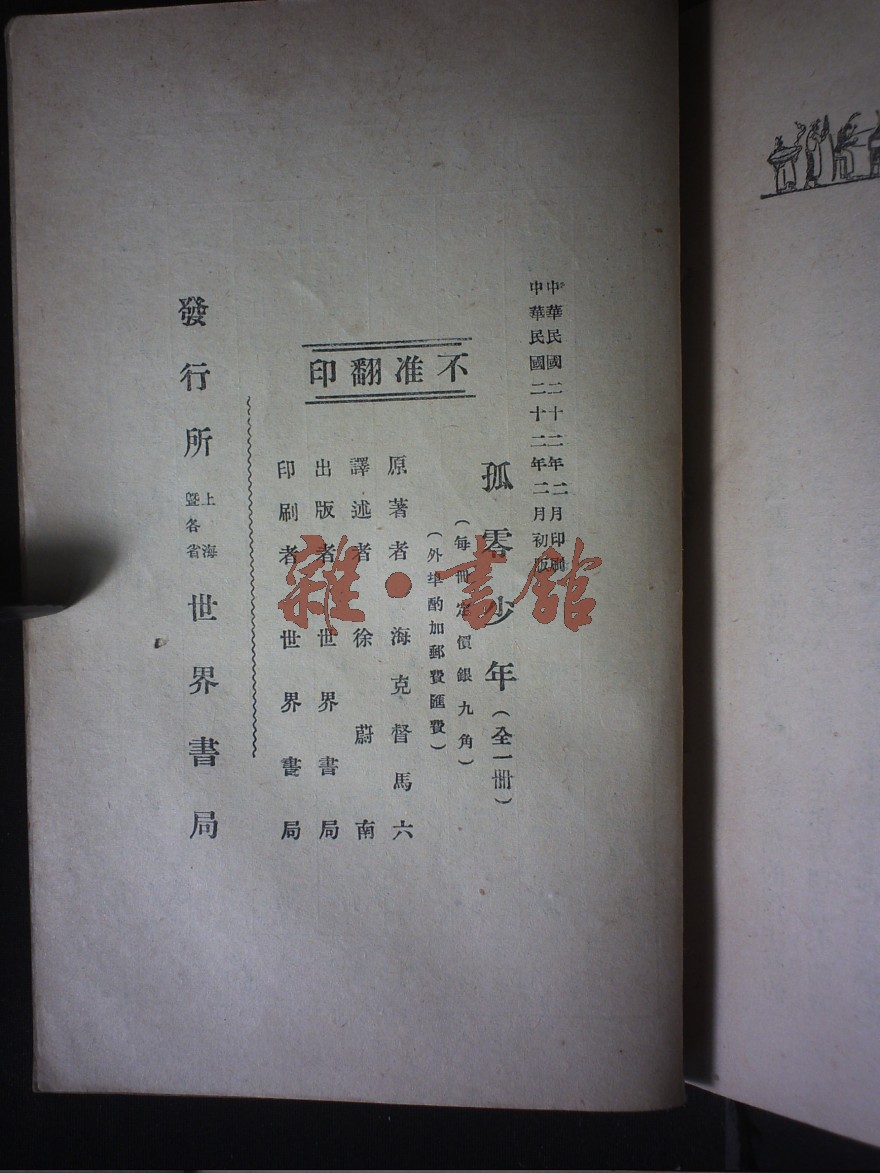 中華民國二十二年二月印刷
中華民國二十二年二月初版
孤零少年（全一冊）
（每冊定價銀九角）
（外埠酌加郵費匯費）
不准翻印
原著者 海克督馬六
譯述者 徐蔚南
出版者 世界書局
印刷者 世界書局
發行所 上海暨各省 世界書局
雜·書館